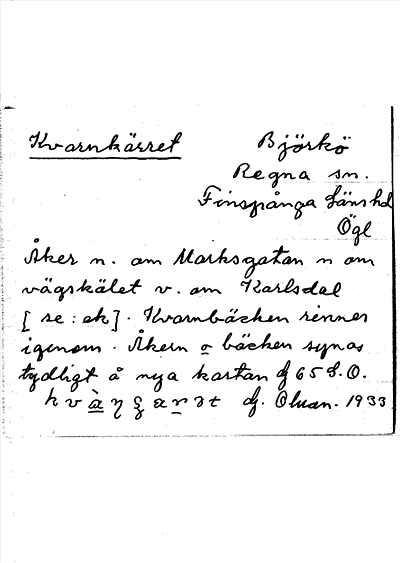 Kvarnkärret
Björkö
Regna sn.
Finspånga länshd
Ögl
Åker n. om Marksgatan n om
vägskälet v. om Karlsdal
[se: ek]. Kvarnbäcken rinner
igenom. Åkern o bäcken synas
tydligt å nya kartan 65 S.O.
1933